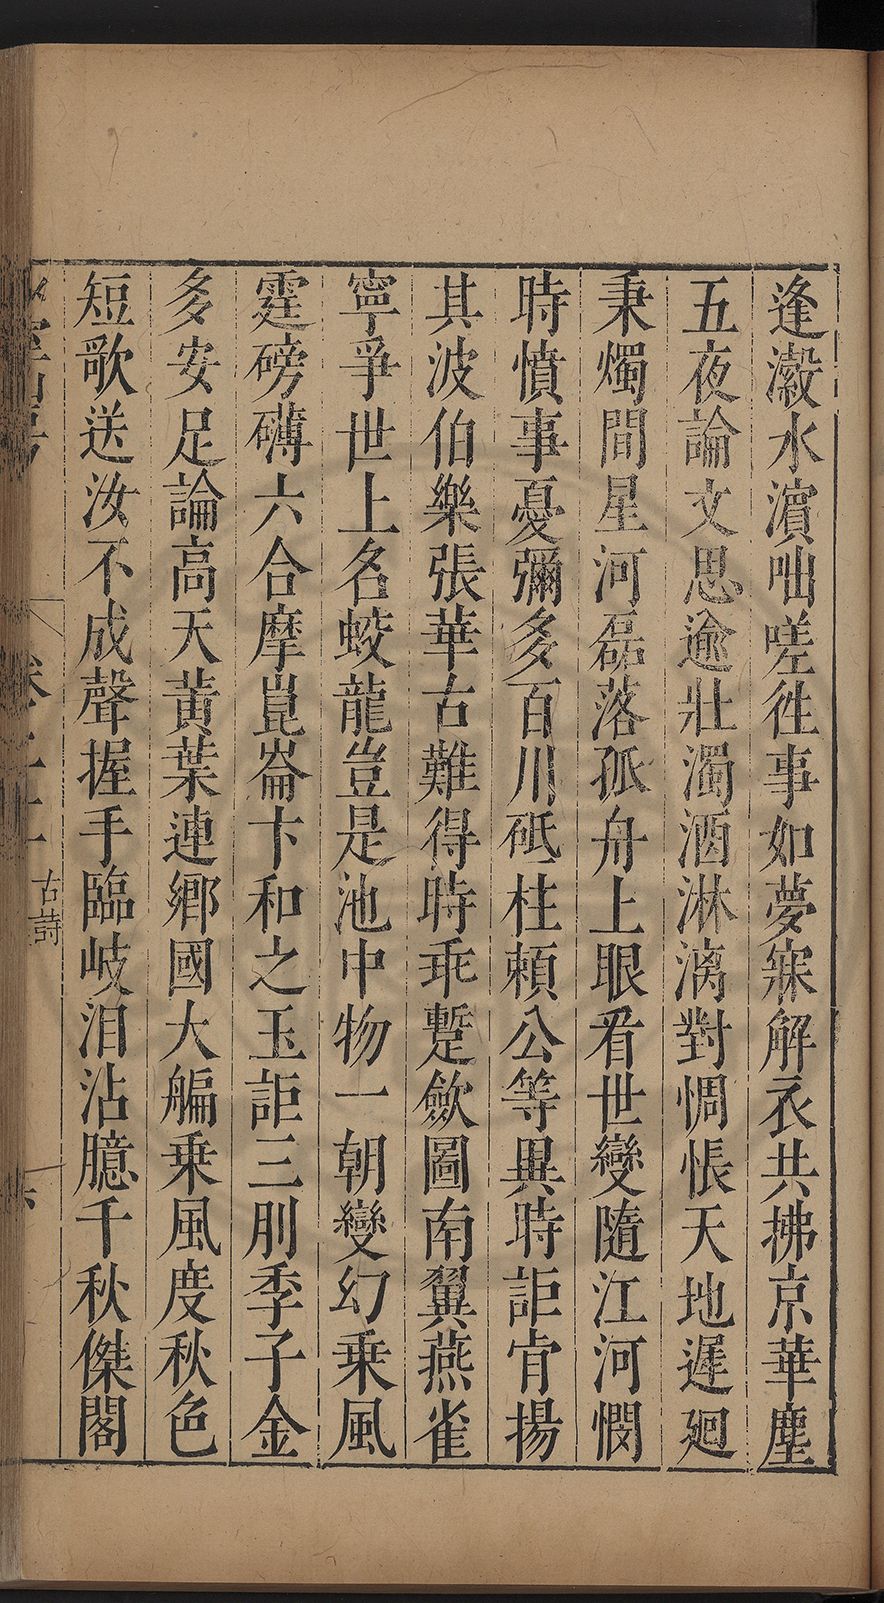 逢瀫水濵咄嗟徃事如夢寐解衣共拂京華塵
五夜論文思逾壯濁酒淋漓對惆悵天地遲廻
秉燭間星河磊落孤舟上眼看世變隨江河憫
時憤事憂彌多百川砥柱頼公等異時詎肯揚
其波伯樂張華古難得時乖蹔歛圖南翼燕雀
寧爭世上名蛟龍豈是池中物一朝變幻乗風
霆磅礴六合摩崑崙卞和之玉詎三刖季子金
多安足論高天黃葉連鄉國大艑乗風度秋色
短歌送汝不成聲握手臨岐泪沾臆千秋傑閣
古詩